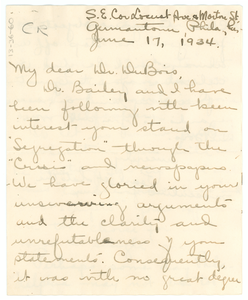 S.E. Cor. Locust Ave. & Morton St.
Germantown, Phila., Pa.,
June 17, 1934.
CR
My dear Dr. DuBois,
Dr. Bailey and I have
been following with keen
interest your stand on
"Segregation" through the
"Crisis" and newspapers.
We have gloried in your
unswerving arguments
and the clarity and
unrefutableness of your
statements. Consequently,
it was with no great degree